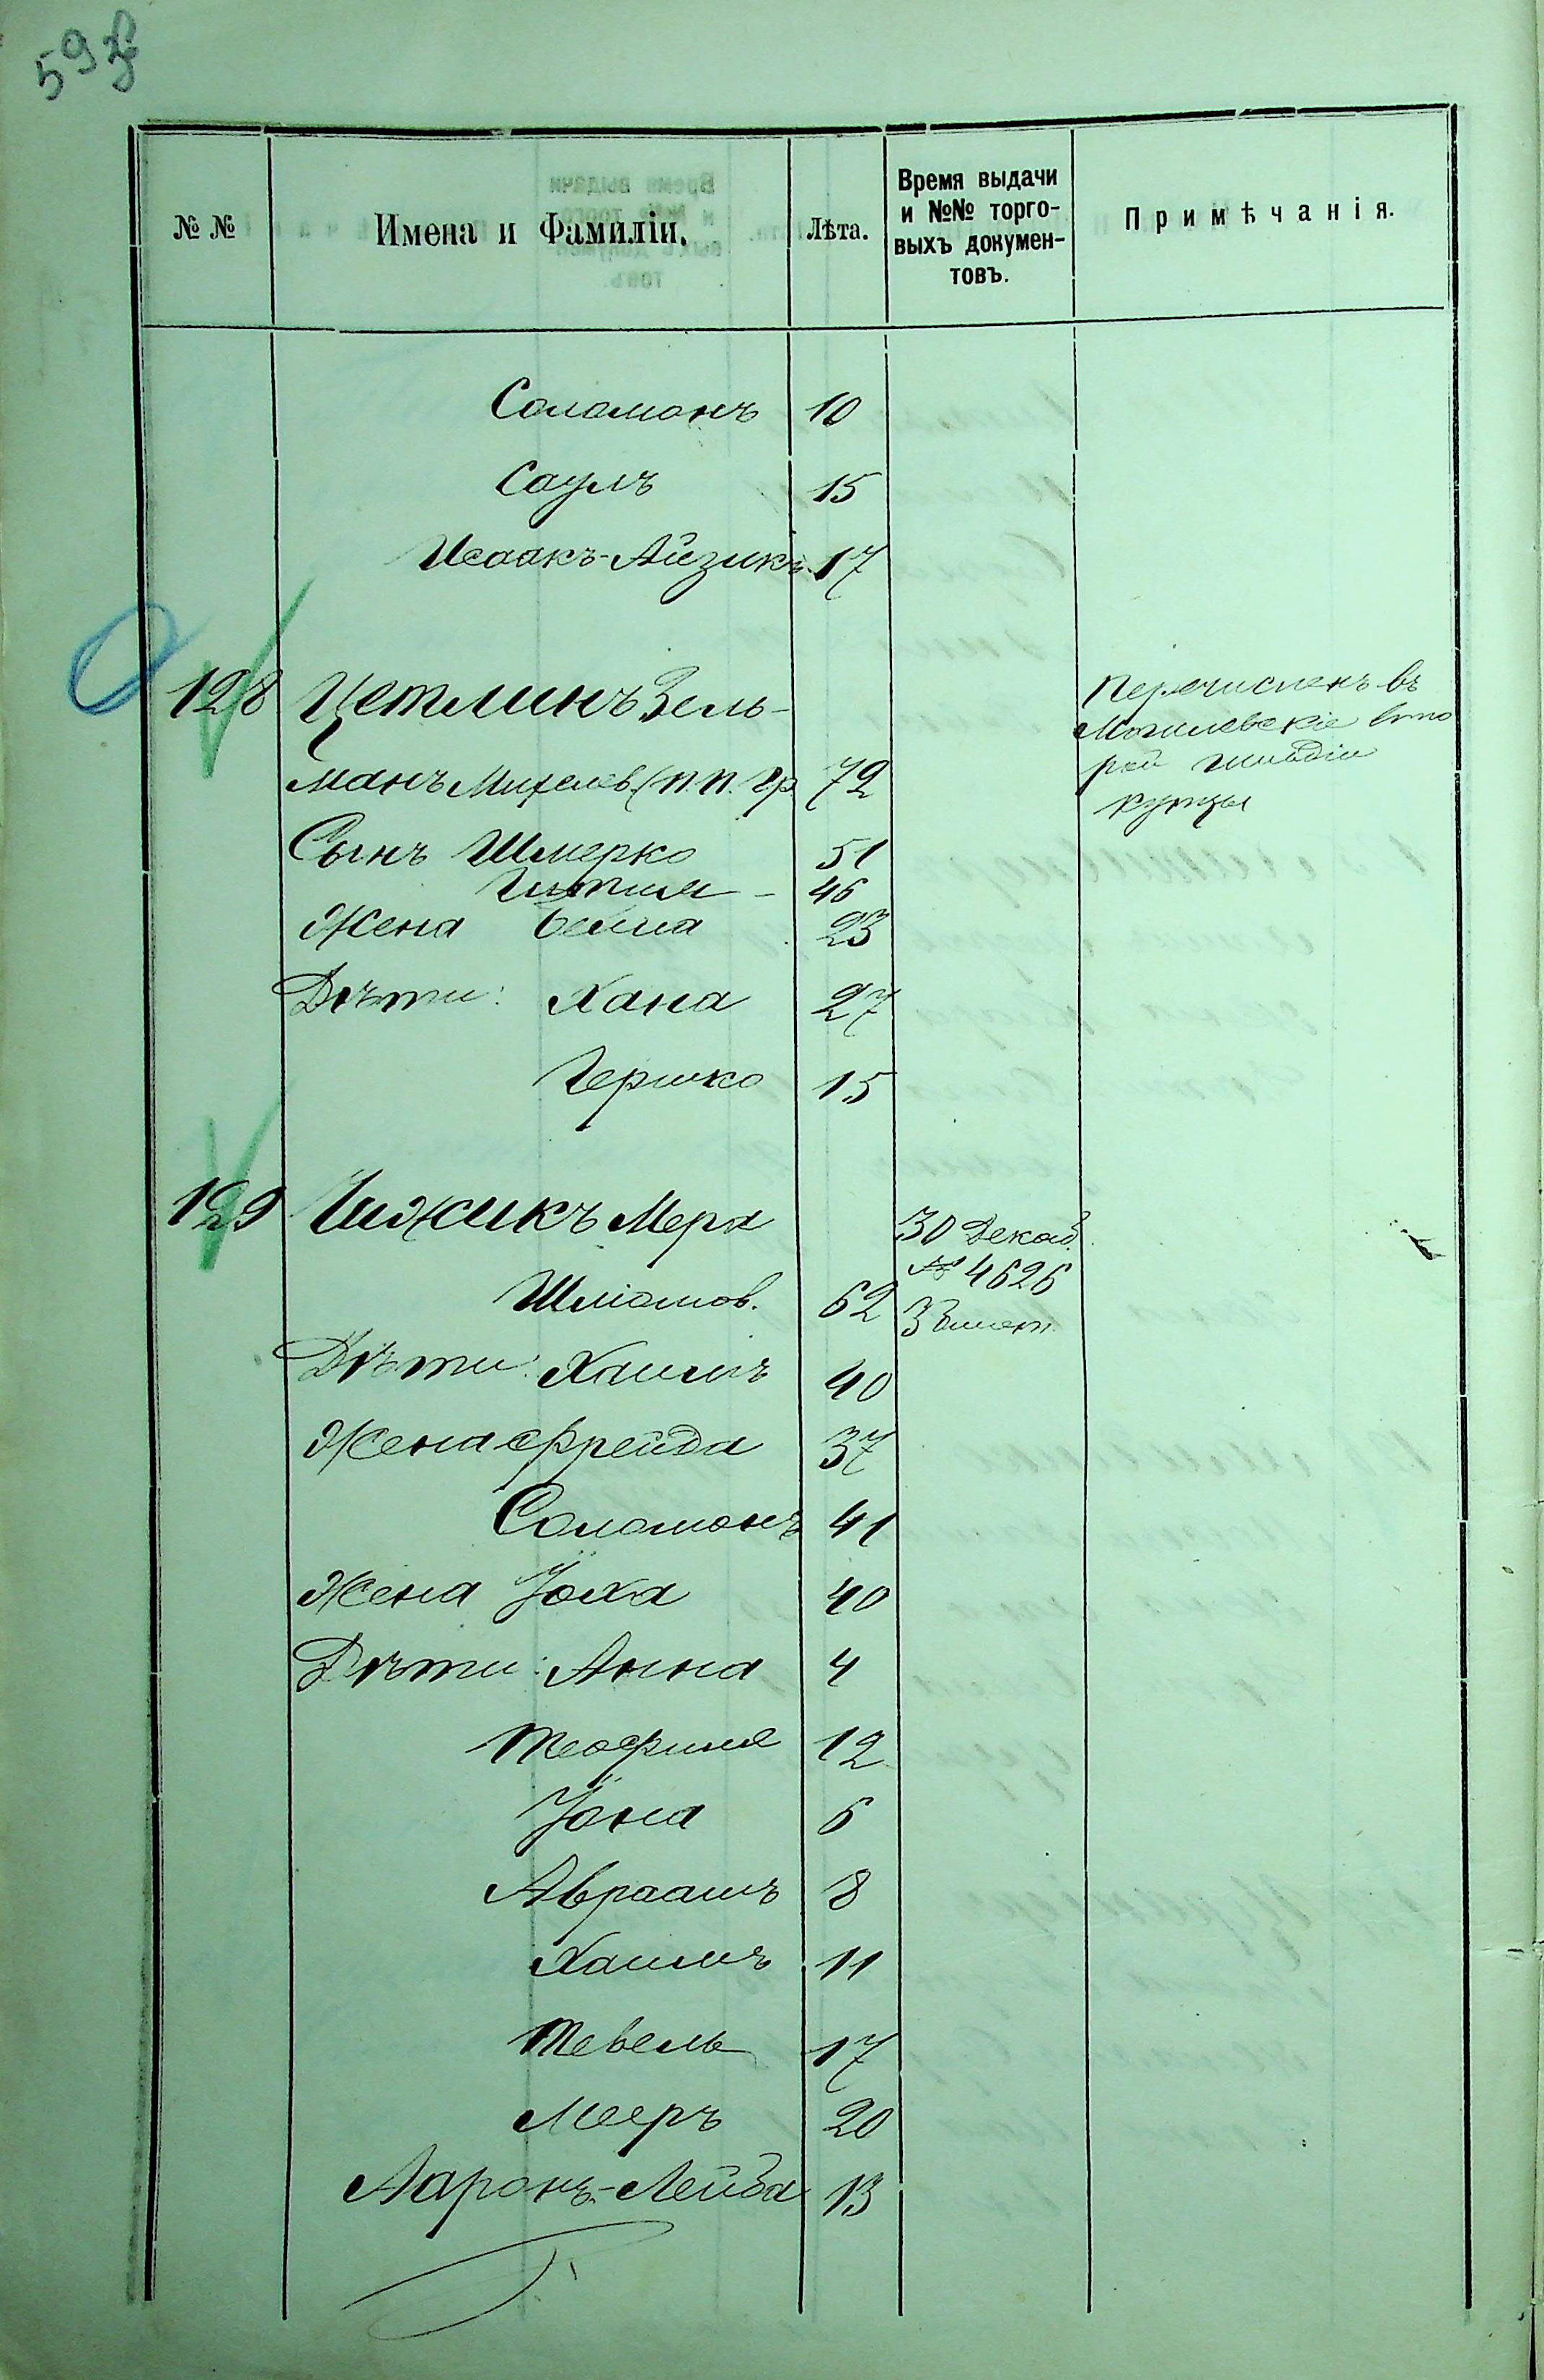 59
№ № Имена и Фамиліи. Лѣта. Время выдачи и №№ торго- Примѣчанія.
выхъ докумен-
товъ.
Соломонъ 10
Саулъ 15
Исаакъ-Айзикъ 17
128 Цетлинъ Зель- Перечисленъ въ
Могилевскіе вто
манъ Михелев. (п. п. гр 72 рой гильдіи
купцы
Сынъ Шмерко 51
46
Жена Бейла 23
Дѣти: Хана 27
Гершко 15
129 Чижикъ Мера 30 Декаб.
№ 4626
Шліомов. 62
Дѣти: Хаимъ 40
Жена Фрейда 37
Соломонъ 41
Жена Іоха 40
Дѣти: Анна 4
Теофиля 12
Іона 6
Авраамъ 8
Хаимъ 11
Тевель 17
Мееръ 20
Ааронъ-Лейба 13